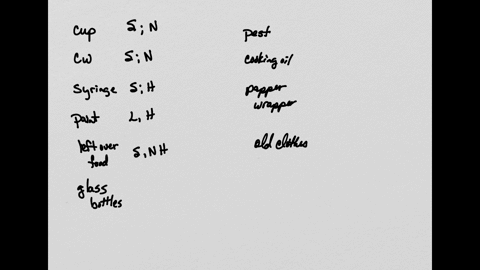 cup S; N
cw S; N
Syringe S; H
paint L, H
left over
food S, NH
glass
bottles
pest
cooking oil
pepper
wrapper
old clothes